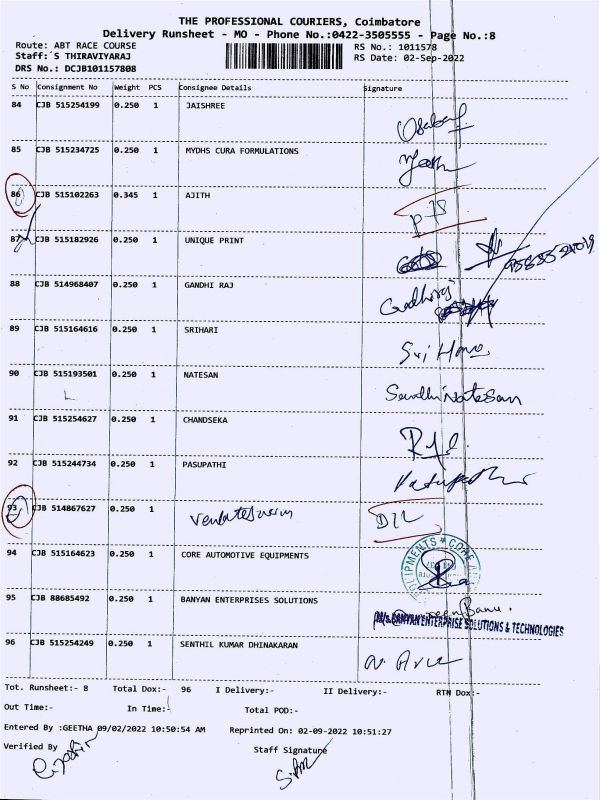 THE PROFESSIONAL COURIERS, Coimbatore
Delivery Runsheet - MO - Phone No.:0422-3505555 - Page No.:8
Route: ABT RACE COURSE RS No.: 1011578
Staff:´S THIRAVIYARAJ RS Date: 02-Sep-2022
DRS No.: DCJB101157808
S No Consignment No Weight PCS Consignee Details Signature
84 CJB 515254199 0.250 1 JAISHREE
85 CJB 515234725 0.250 1 MYDHS CURA FORMULATIONS
86 CJB 515102263 0.345 1 AJITH
87 CJB 515182926 0.250 1 UNIQUE PRINT
88 CJB 514968407 0.250 1 GANDHI RAJ
89 CJB 515164616 0.250 1 SRIHARI
Sri Hari
90 CJB 515193501 0.250 1 NATESAN
Natesan
91 CJB 515254627 0.250 1 CHANDSEKA
92 CJB 515244734 0.250 1 PASUPATHI
93 CJB 514867627 0.250 1
94 CJB 515164623 0.250 1 CORE AUTOMOTIVE EQUIPMENTS
95 CJB 88685492 0.250 1 BANYAN ENTERPRISES SOLUTIONS
Banu.
M/s.BANYAN ENTERPRISE SOLUTIONS & TECHNOLOGIES
96 CJB 515254249 0.250 1 SENTHIL KUMAR DHINAKARAN
Tot. Runsheet:- 8 Total Dox:- 96 I Delivery:- II Delivery:- RTN Dox:-
Out Time:- In Time:- Total POD:-
Entered By :GEETHA 09/02/2022 10:50:54 AM Reprinted On: 02-09-2022 10:51:27
Verified By Staff Signature